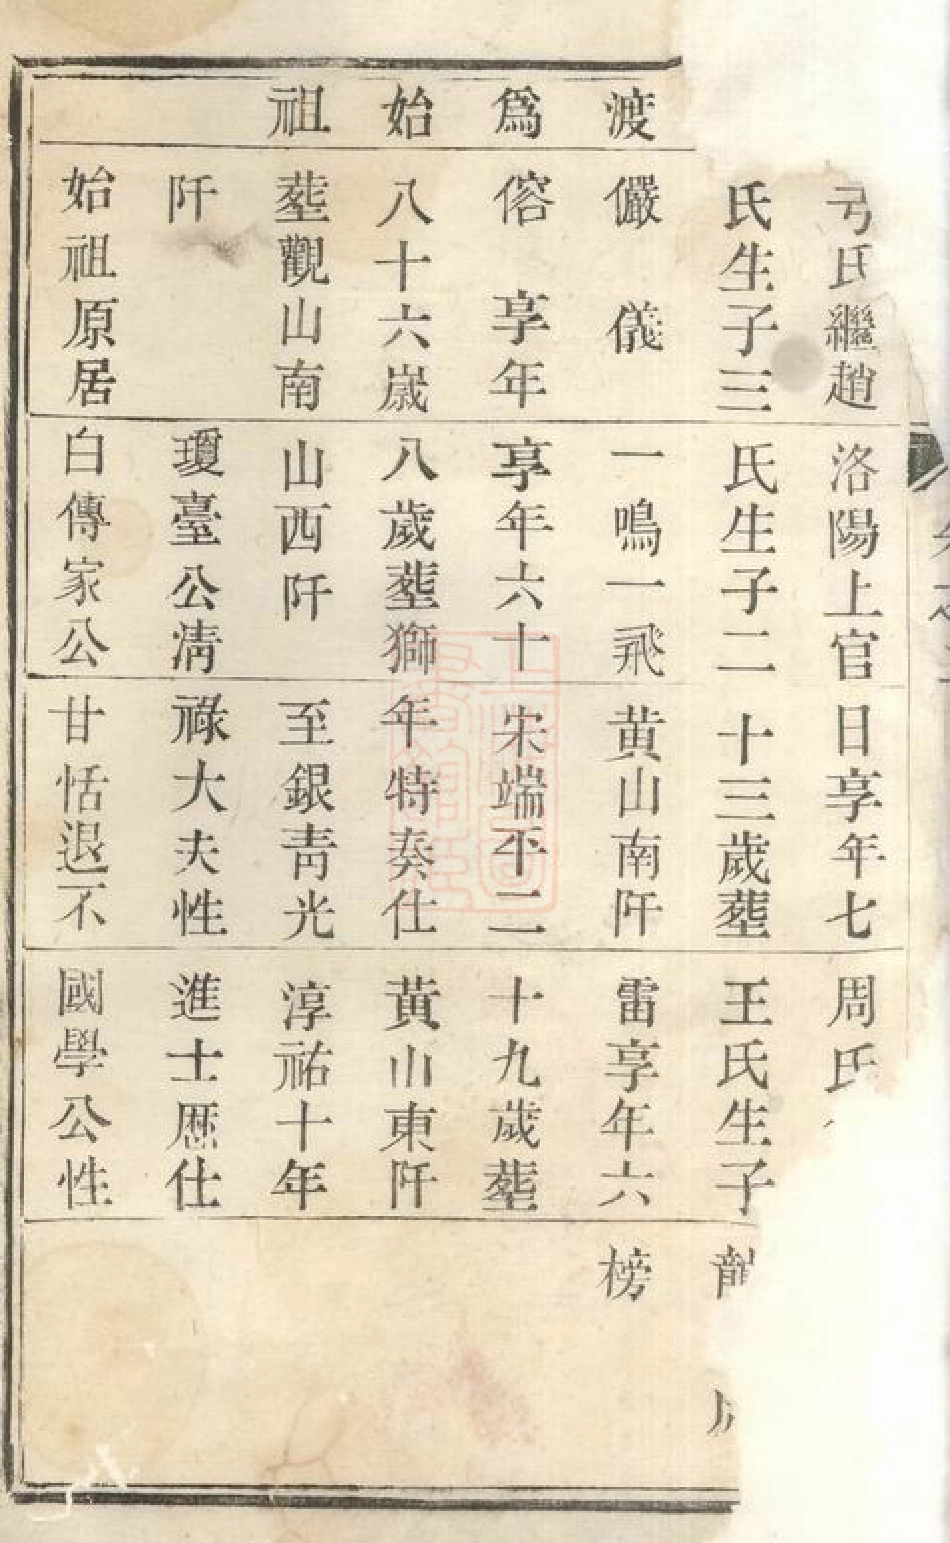 渡
爲
始
祖
氏繼趙
氏生子三
儼 儀
傛 享年
八十六歲
塟觀山南
阡
始祖原居
洛陽上官
氏生子二
一鳴一飛
享年六十
八歲塟獅
山西阡
瓊臺公清
白傳家公
日享年七
十三歲塟
黄山南阡
宋端平二
年特奏仕
至銀青光
祿大夫性
甘恬退不
周氏
王氏生子
雷享年六
十九歲塟
黃山東阡
淳祐十年
進士歷仕
國學公性
榜